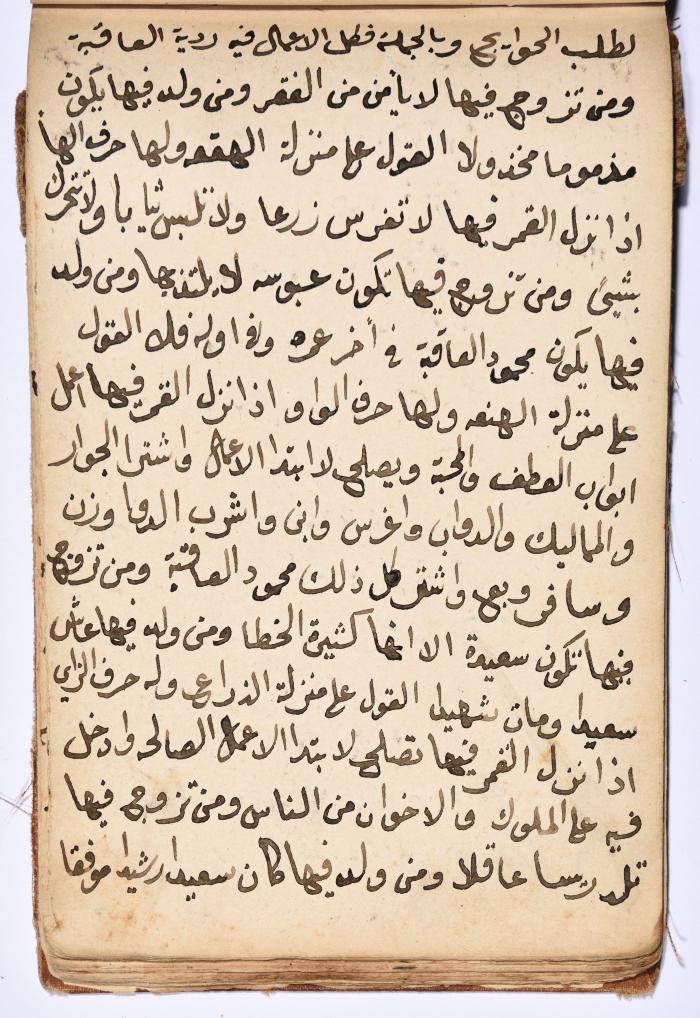 لطلب الحوايج وبالجملة فكل الاعمال فيه ردية العاقبة
ومن تزوج فيها لا يأمن من الفقر ومن ولد فيها يكون
مذموما مخذولا القول على منزلة الهقعه ولها حرف الها
اذا نزل القمر فيها لا تغرس زرعا ولا تلبس ثيابا ولا تتحرك
بشيئ ومن تزوج فيها تكون عبوسه لا يلتذ بها ومن ولد
فيها يكون محمود العاقبة في أخر عمره وفي اوله فلا القول
على منزلة الهنعه ولها حرف الواو اذا نزل القمر فيها اعمل
ابواب العطف والمحبة ويصلح لابتدا الاعمال واشترا الجوار
والمماليك والدواب واغرس وابني واشرب الدوا وزن
وسافر وبع واشتر كل ذلك محمود العاقبة ومن تزوج
فيها تكون سعيدة الا انها كثيرة الخطا ومن ولد فيها عاش
سعيدا ومات شهيدا القول على منزلة الذراع وله حرف الزاي
اذا نزل القمر فيها تصلح لابتدا الاعمال الصالحه وادخل
فيه على الملوك والاخوان من الناس ومن تزوج فيها
تلد عاقلا ومن ولد فيها كان سعيدا رشيدا موفقا